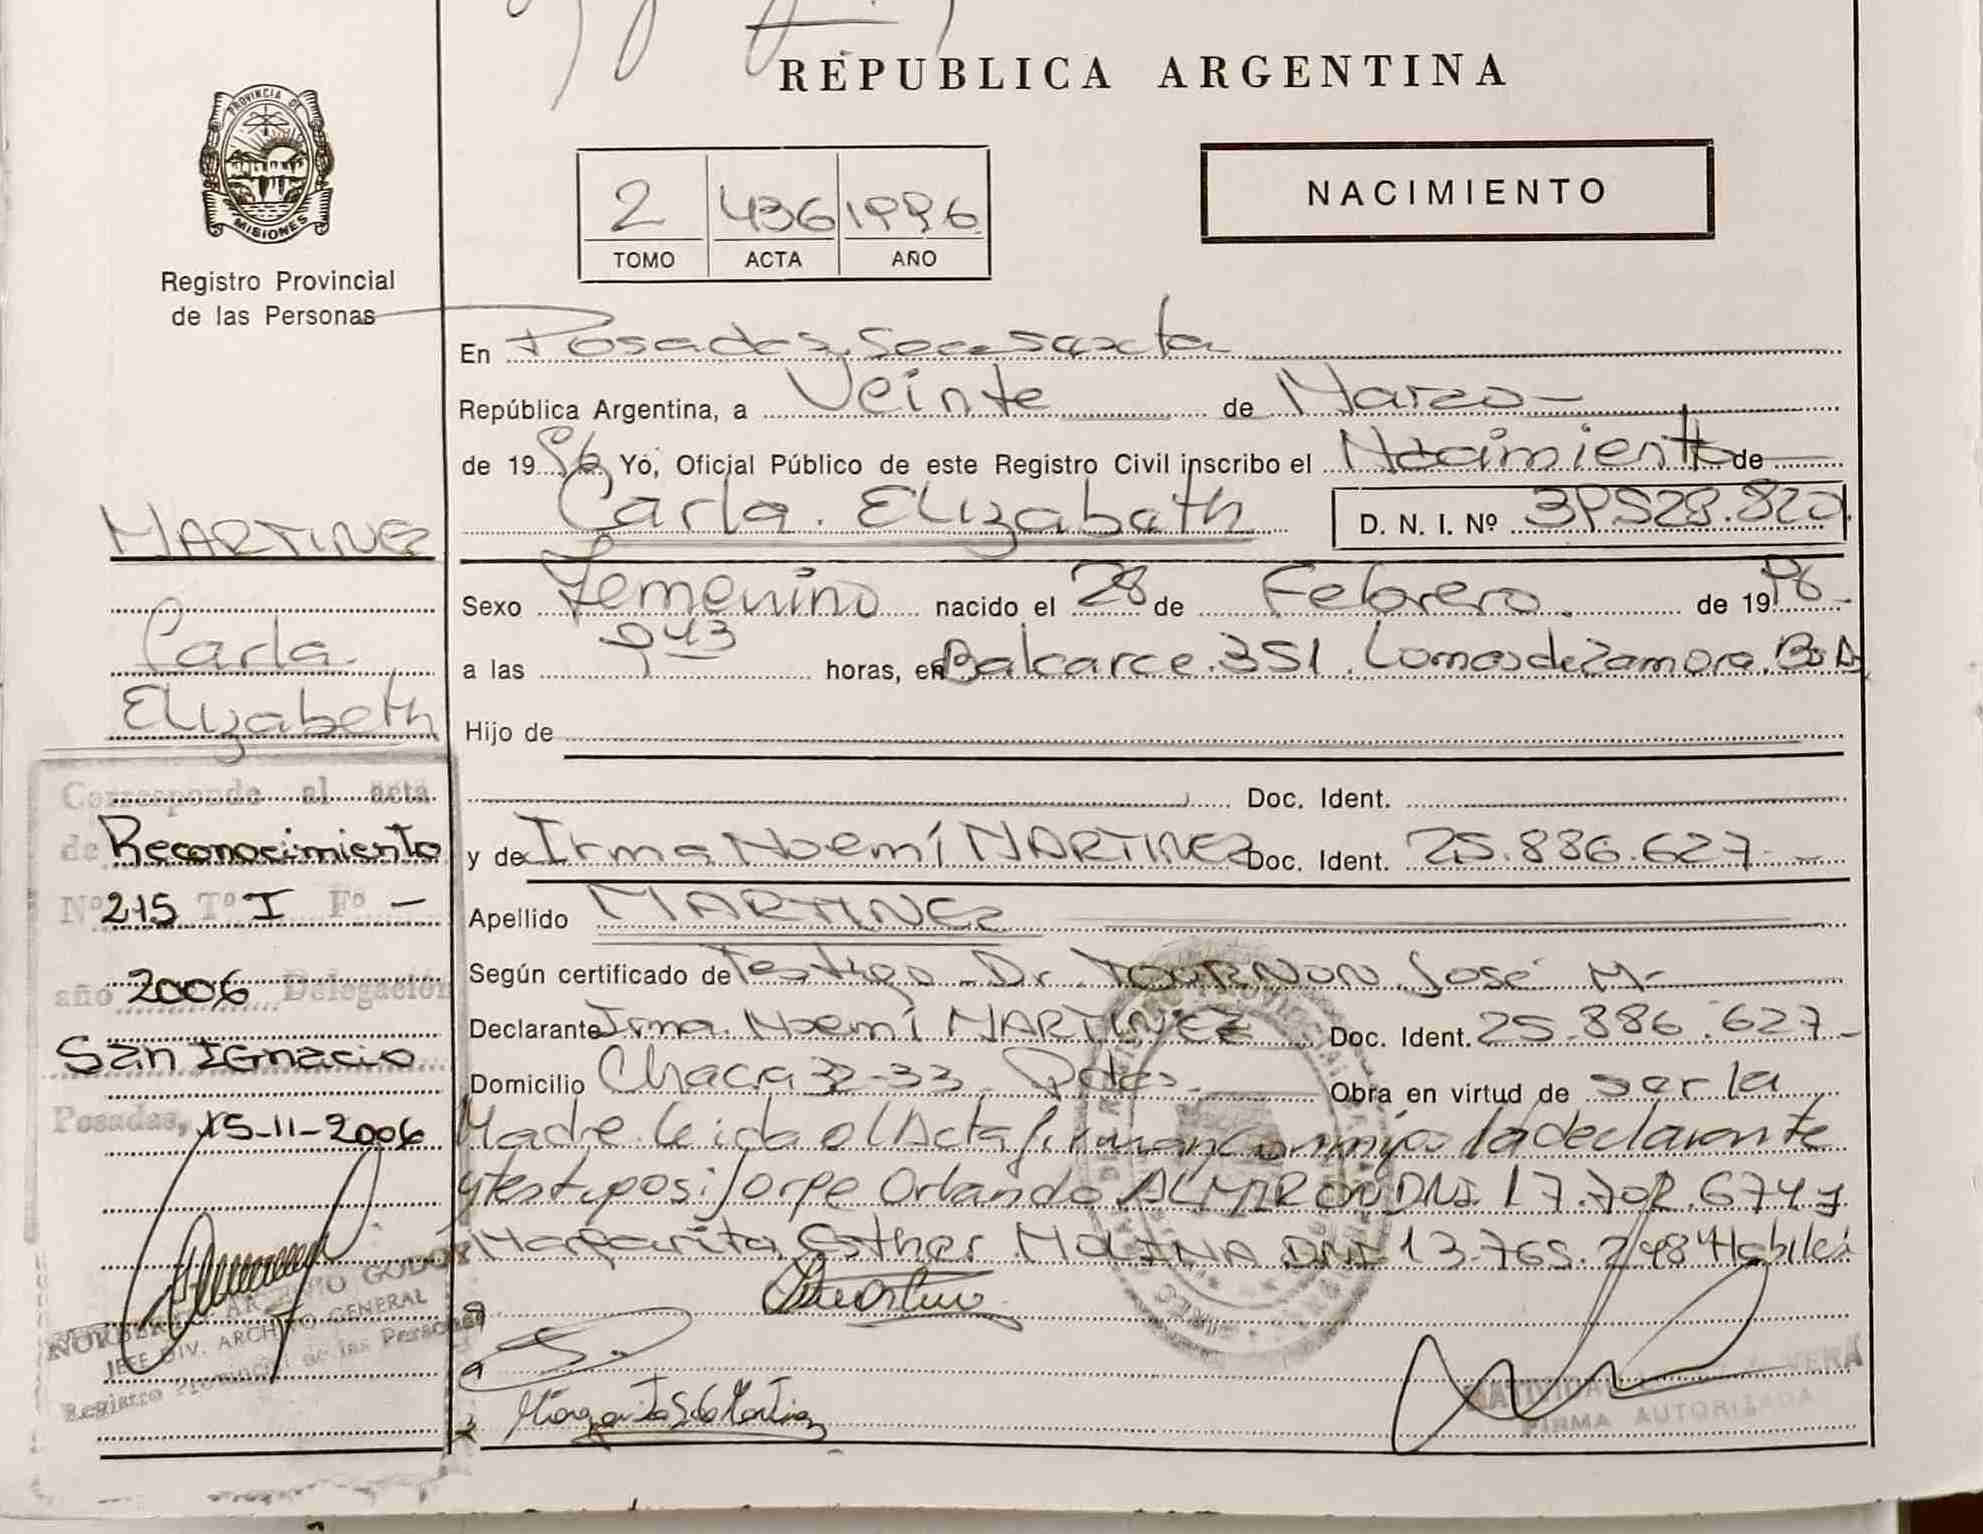 REPUBLICA ARGENTINA
PROVINCIA DE
MISIONES
Registro Provincial
de las Personas
NACIMIENTO
2 436 1996
TOMO ACTA AÑO
En Posadas, Secc. Sexta
República Argentina, a Veinte de Marzo
de 1996 Yo, Oficial Público de este Registro Civil inscribo el Nacimiento de
Carla Elizabeth D. N. I. Nº 39.528.820
Sexo Femenino nacido el 28 de Febrero de 1996
a las 943 horas, en Balcarce 351. Lomas de Zamora. Bs As
Hijo de
Doc. Ident.
y de Irma Noemí MARTINEZ Doc. Ident. 25.886.627
Apellido MARTINEZ
Según certificado de Testigo Dr. TOURNON José M
Declarante Irma Noemí MARTINEZ Doc. Ident. 25.886.627
Domicilio Chaca 32-33 Pdas. Obra en virtud de ser la
Madre. Leida el Acta firman conmigo la declarante
y testigos: Jorge Orlando ALMIRON DNI 17.702.674 y
Margarita Esther MOLINA DNI 13.765.248 Habiles
MARTINEZ
Carla
Elizabeth
Corresponde al acta
de Reconocimiento
Nº 215 Tº I Fº -
año 2006 Delegación
San Ignacio
Posadas, 15-11-2006
GODOY
JEFE DIV. ARCHIVO GENERAL
Registro Provincial de las Personas
VERA
FIRMA AUTORIZADA